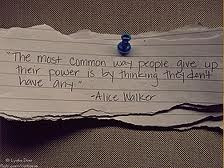 "The most common way people give up
their power is by thinking they don't
have any."
-Alice Walker
© Lydia Dow